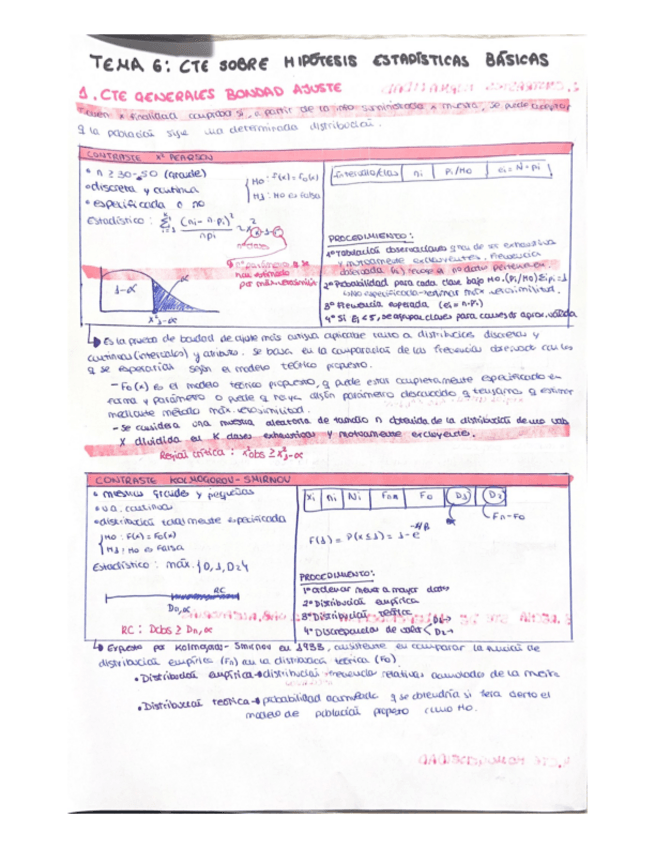 TEMA 6: CTE SOBRE HIPÓTESIS ESTADÍSTICAS BÁSICAS
1. CTE GENERALES BONDAD AJUSTE
Tienen x finalidad comprobar si, a partir de la info suministrada x muestra, se puede aceptar
q la población sigue una determinada distribución.
CONTRASTE X² PEARSON
• n ≥ 30-50 (grande)
• discreta y continua
• especificada o no
H0: f(x) = f0(x)
H1: H0 es falsa
Estadístico:
nº clases
nº parámetros q se
han estimado
por máx. verosimilitud
1-α
α
X²1-α
Intervalo/clas | ni | Pi/H0 | ei = N·pi
PROCEDIMIENTO:
1º Tabulación observaciones
y mutuamente excluyentes. Frecuencia
observada (ni)
2º Probabilidad para cada clase bajo H0. (Pi/H0) Σpi=1
3º Frecuencia esperada (ei = n·Pi)
4º Si Ei < 5, se agrupan clases
↳ Es la prueba de bondad de ajuste más antigua aplicable tanto a distribuciones discretas y
continuas (intervalos) y atributos. Se basa en la comparación de las frecuencias observadas con las
q se esperarían según el modelo teórico propuesto.
- F0(x) es el modelo teórico propuesto, q puede estar completamente especificado en
forma y parámetro o puede q haya algún parámetro desconocido q tengamos q estimar
mediante método máx. verosimilitud.
- Se considera una muestra aleatoria de tamaño n obtenida de la distribución de una vab
X dividida en K clases exhaustivas y mutuamente excluyentes.
Región crítica: X²obs ≥ X²1-α
CONTRASTE KOLMOGOROV-SMIRNOV
• muestras grandes y pequeñas
• v.a. continua
• distribución totalmente especificada
H0: F(x) = F0(x)
H1: H0 es Falsa
Estadístico: máx. {D1, D2}
RC
Dn,α
RC: Dobs ≥ Dn,α
Xi | ni | Ni | Fn | F0 | D1 | D2
Fn-F0
PROCEDIMIENTO:
1º ordenar menor a mayor datos
2º Distribución empírica
3º Distribución teórica
4º Discrepancias de valor D1→
D2→
↳ Expuesto por Kolmogorov-Smirnov en 1933, consistente en comparar la función de
distribución empírica (Fn) con la distribución teórica (F0).
• Distribución empírica → distribución frecuencias relativas acumuladas de la muestra
• Distribución teórica → probabilidad acumulada q se obtendría si fuera cierto el
modelo de población propuesto como H0.